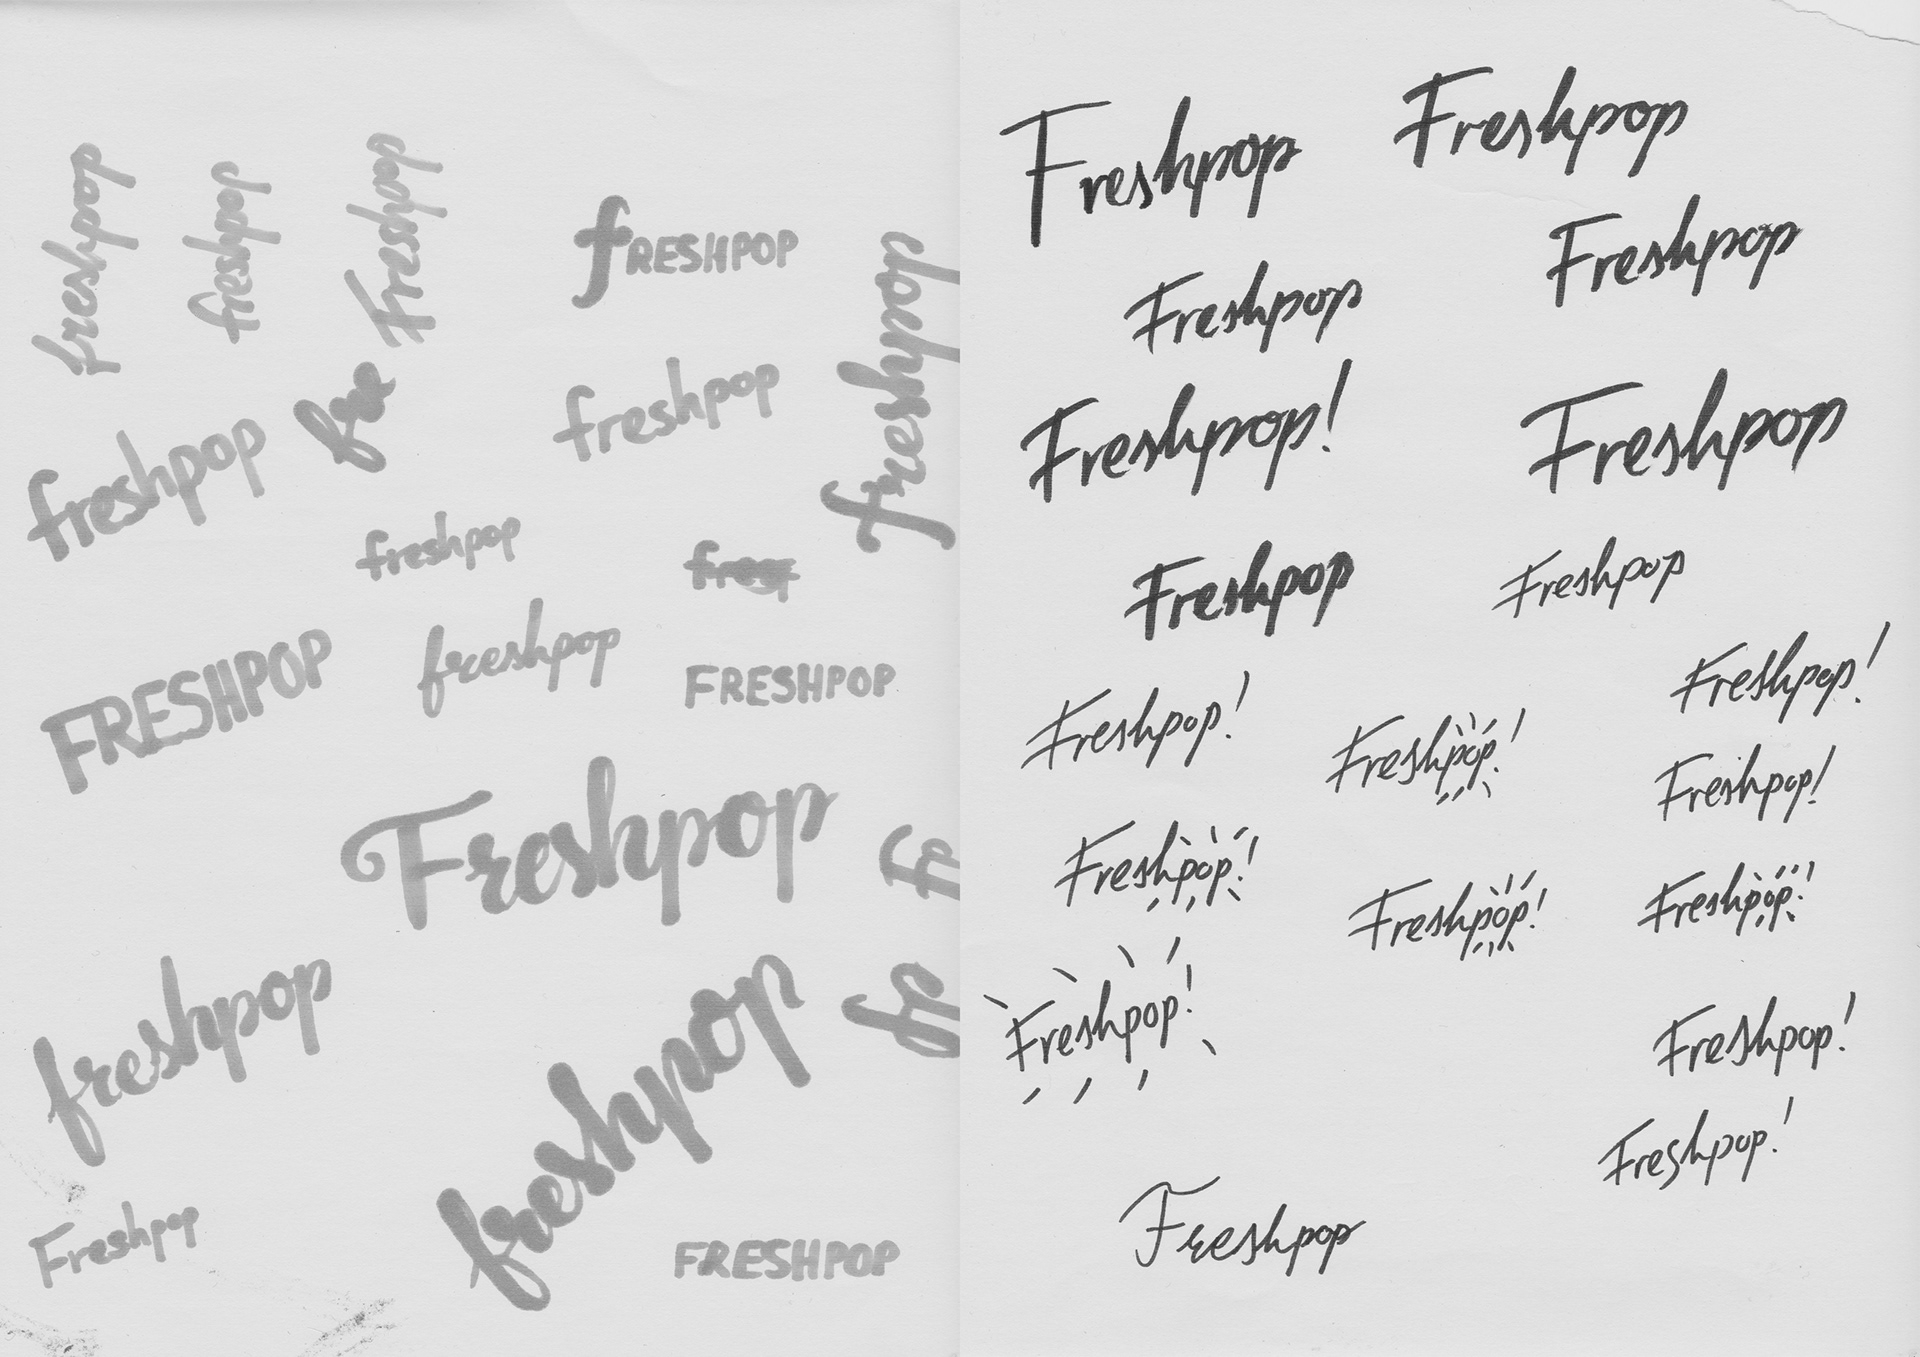 freshpop
freshpop
Freshpop
fRESHPOP
freshpop
fre
freshpop
freshpop
freshpop
FRESHPOP
freshpop
FRESHPOP
Freshpop
freshpop
freshpop
Freshpop
FRESHPOP
Freshpop
Freshpop
Freshpop
Freshpop
Freshpop!
Freshpop
Freshpop
Freshpop
Freshpop!
Freshpop!
Freshpop!
Freshpop!
Freshpop!
Freshpop!
Freshpop!
Freshpop!
Freshpop!
Freshpop!
Freshpop